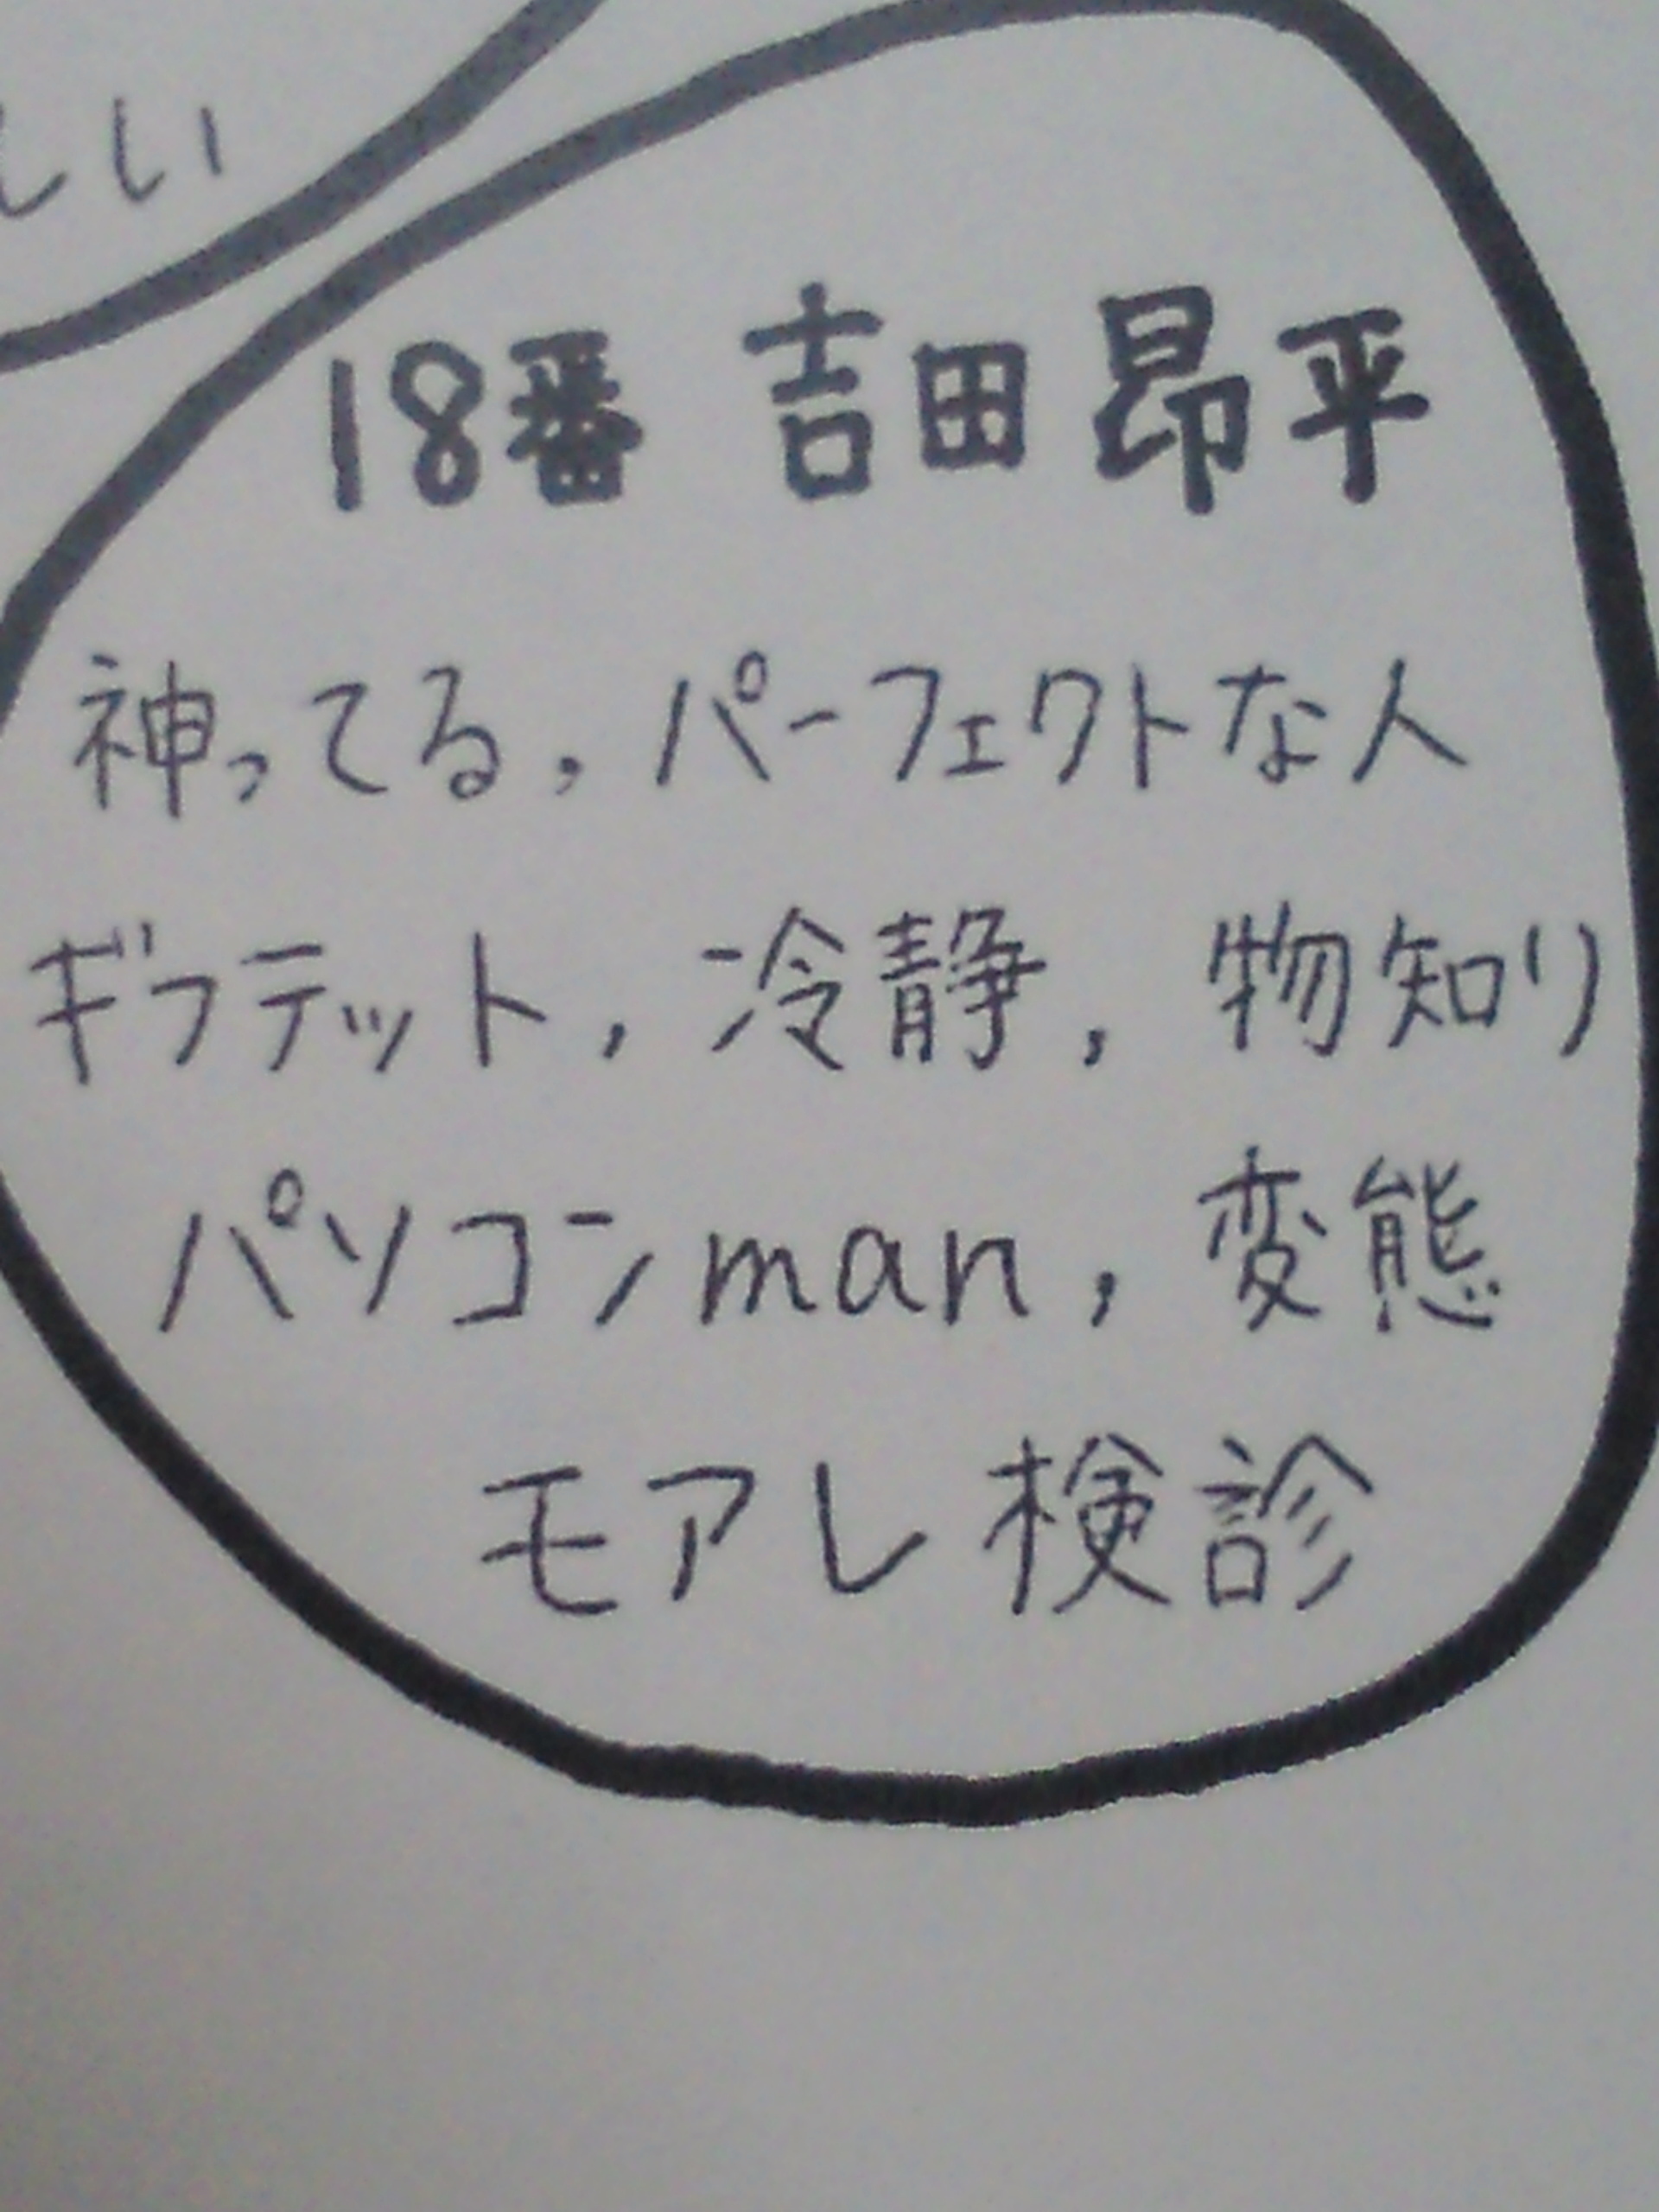 しい
18番 吉田昂平
神ってる, パーフェクトな人
ギフテット, 冷静, 物知り
パソコンman, 変態
モアレ検診